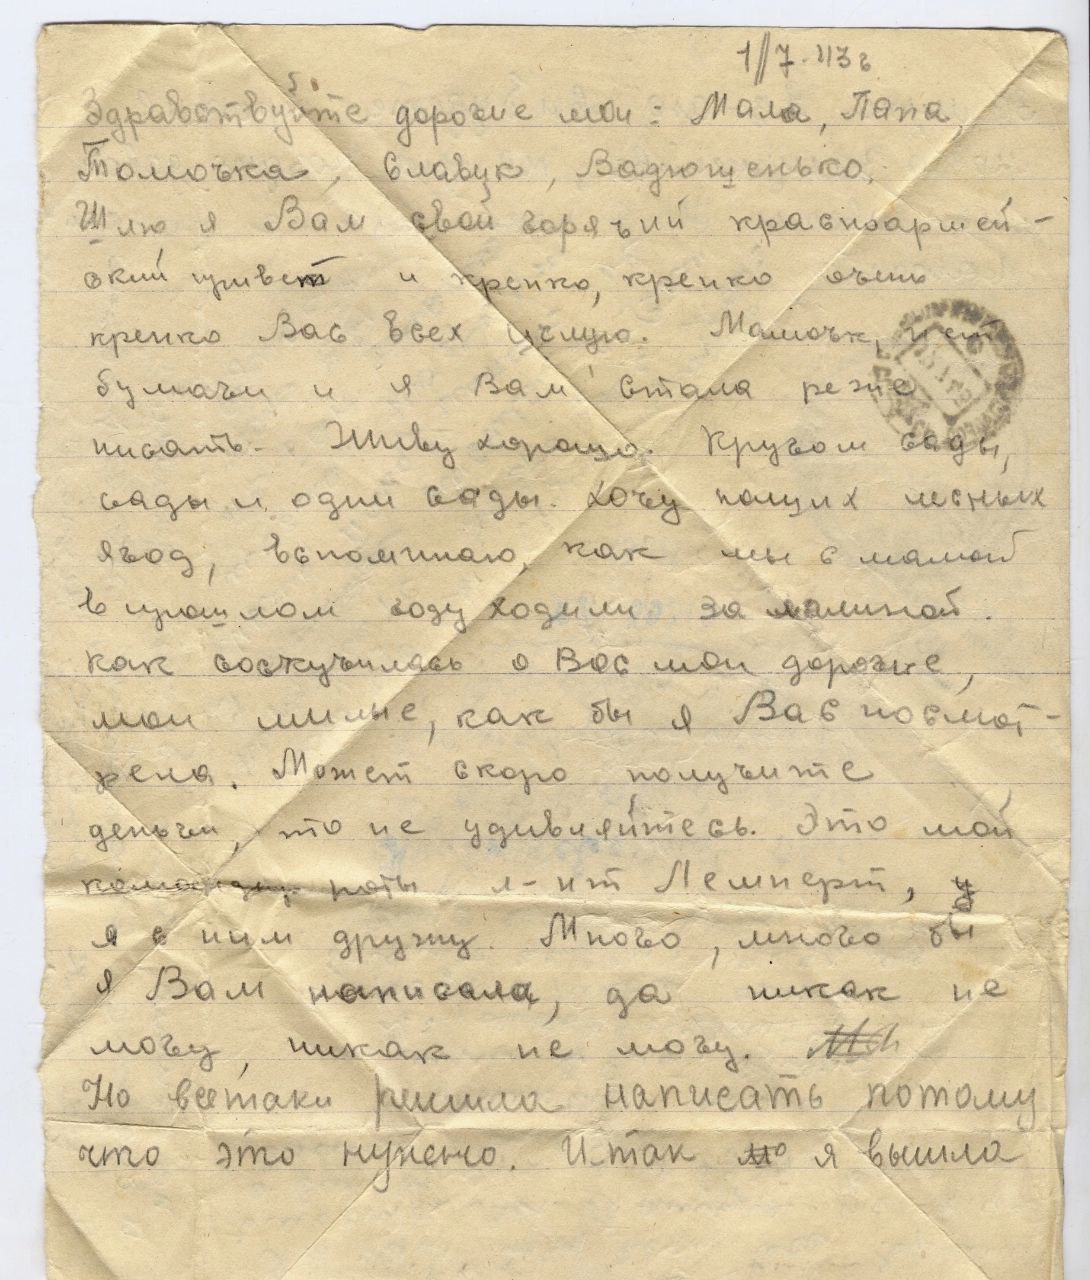 1/7-43г
Здравствуйте дорогие мои: Мама, Папа,
Томочка, Славук, Вадюшенько.
Шлю я Вам свой горячий красноармей-
ский привет и крепко, крепко очень
крепко Вас всех целую. Мамочк, нет
бумаги и я Вам стала реже
писать. Живу хорошо. Кругом сады,
сады и одни сады. Хочу наших лесных
ягод, вспоминаю, как мы с мамой
в прошлом году ходили за малиной.
Как соскучилась о Вас мои дорогие,
мои милые, как бы я Вас посмот-
рела. Может скоро получите
деньги, то не удивляйтесь. Это мой
командир роты л-нт Лемперт,
я с ним дружу. Много, много бы
я Вам написала, да никак не
могу, никак не могу.
Но всетаки решила написать потому
что это нужно. Итак я вышла